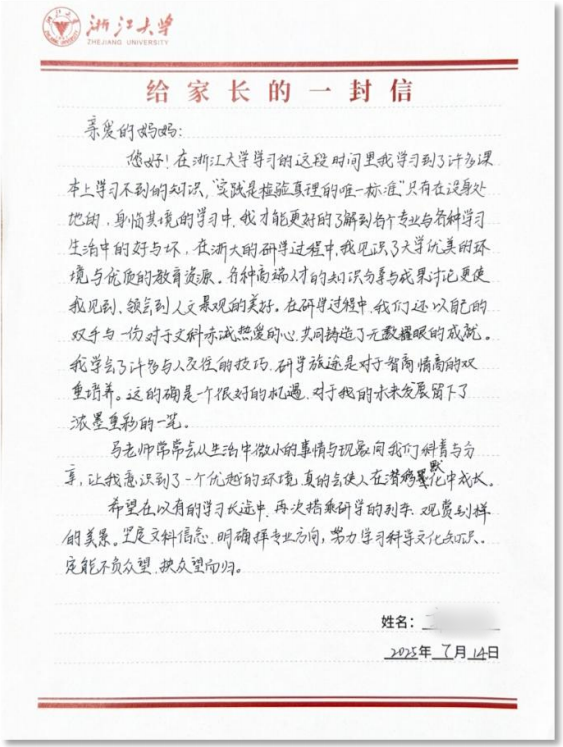 浙江大学
ZHEJIANG UNIVERSITY
给家长的一封信
亲爱的妈妈:
您好!在浙江大学学习的这段时间里我学习到了许多课
本上学习不到的知识,“实践是检验真理的唯一标准”只有在设身处
地的,身临其境的学习中,我才能更好的了解到各个专业与各种学习
生活中的好与坏,在浙大的研学过程中,我见识了大学优美的环
境与优质的教育资源。各种高端人才的知识分享与成果讨论更使
我见到、领会到人文景观的美好。在研学过程中,我们还以自己的
双手与一份对于文科赤诚热爱的心,共同铸造了无数耀眼的成就。
我学会了许多与人交往的技巧,研学旅途是对于智商情商的双
重培养。这的确是一个很好的机遇,对于我的未来发展留下了
浓墨重彩的一笔。
马老师常常会从生活中微小的事情与现象向我们科普与分
享,让我意识到了一个优越的环境,真的会使人在潜移默化中成长。
希望在以后的学习长途中,再次搭乘研学的列车,观赏别样
的美景。坚定文科信念,明确择专业方向,努力学习科学文化知识。
定能不负众望,携众望而归。
姓名:
2025年 7月 14日